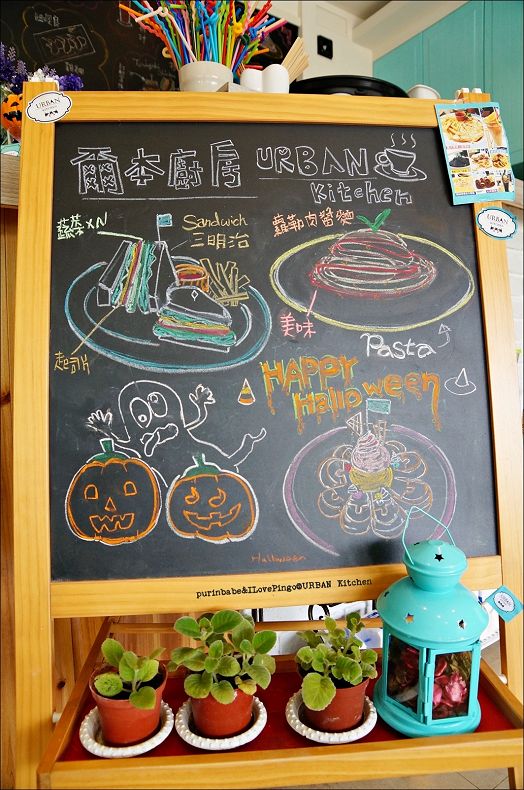 URBAN
爾本廚房 URBAN
Kitchen
蔬菜XN
Sandwich
三明治
蘿勒肉醬麵
起司
美味
Pasta
HAPPY
Halloween
Halloween
purinbabe&ILovePingo@URBAN Kitchen
URBAN